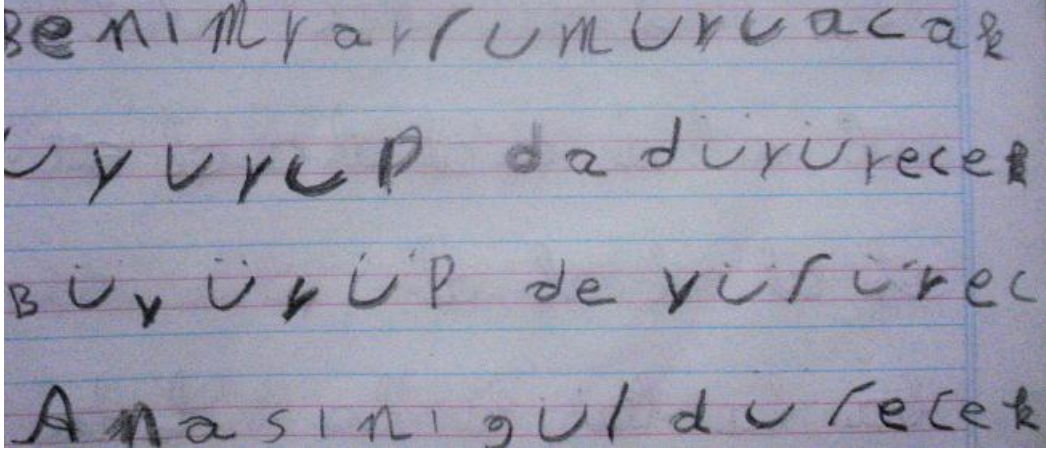 Benim yarrum uyuacak
uyuyup da düyüyecek
Büyüyüp de yürüyec
Anasini güldürecek